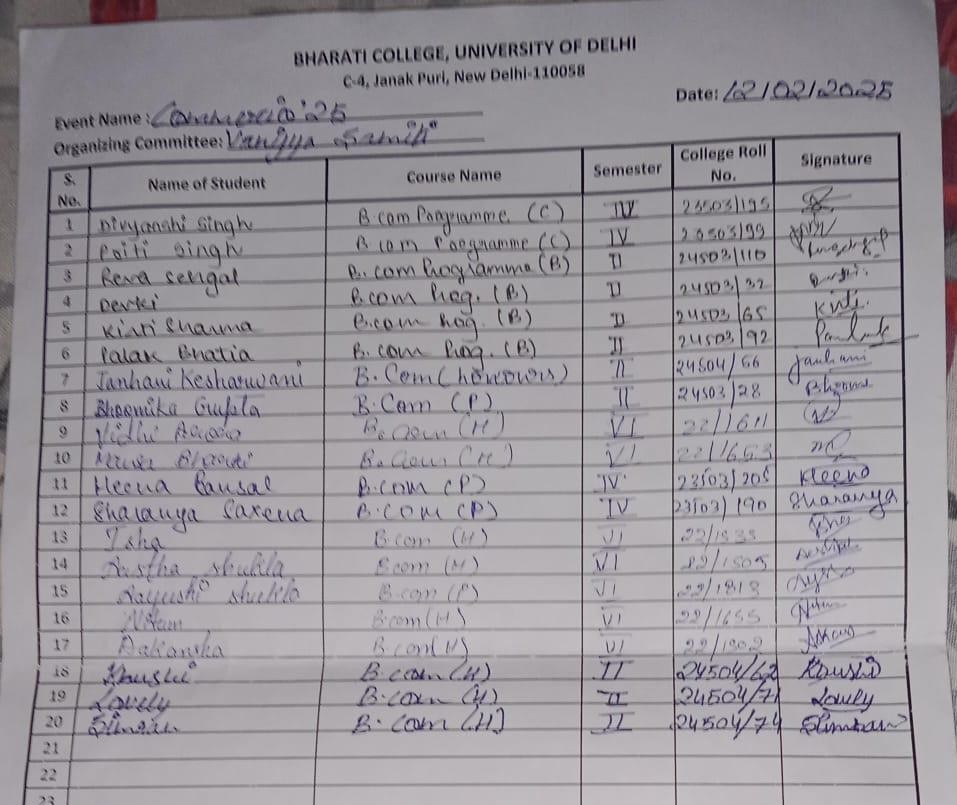 BHARATI COLLEGE, UNIVERSITY OF DELHI
C-4, Janak Puri, New Delhi-110058
Date: 12/02/2025
Event Name : Commercio'25
Organizing Committee: Vanijya Samiti
S. No. Name of Student Course Name Semester College Roll No. Signature
1 Divyanshi Singh B.com Programme (C) IV 23503/195
2 Singh B.com Programme (C) IV 23503/99
3 Rewa Sengal B.com Programme (B) II 24503/110
4 Devki B.com Prog. (B) II 24503/32
5 Kirti Sharma B.com Prog. (B) II 24503/65 Kirti.
6 Palak Bhatia B.com Prog. (B) II 24503/92
7 Janhavi Kesharwani B.Com (honours) II 24504/56 Janhavi
8 Bhoomika Gupta B.Com (P) II 24503/28
9 Vidhi B.Com (H) VI 22/1611
10 B.Com (H) VI 22/1653
11 Heena Bansal B.com (P) IV 23503/205 Heena
12 Sharanya Saxena B.com (P) IV 23503/190 Sharanya
13 Isha Bcom (H) VI
14 Aastha Shukla Bcom (H) VI 22/1505
15 Aayushi Shukla B.com (P) VI 22/1813
16 B.com (H) VI 22/1655
17 Aakanska B.com (H) VI 22/1502
18 Khushi B.com (H) II 24504/62 Khushi
19 Lovely B.com (H) II 24504/71 Lovely
20 Simran B.com (H) II 24504/74 Simran
21
22
23